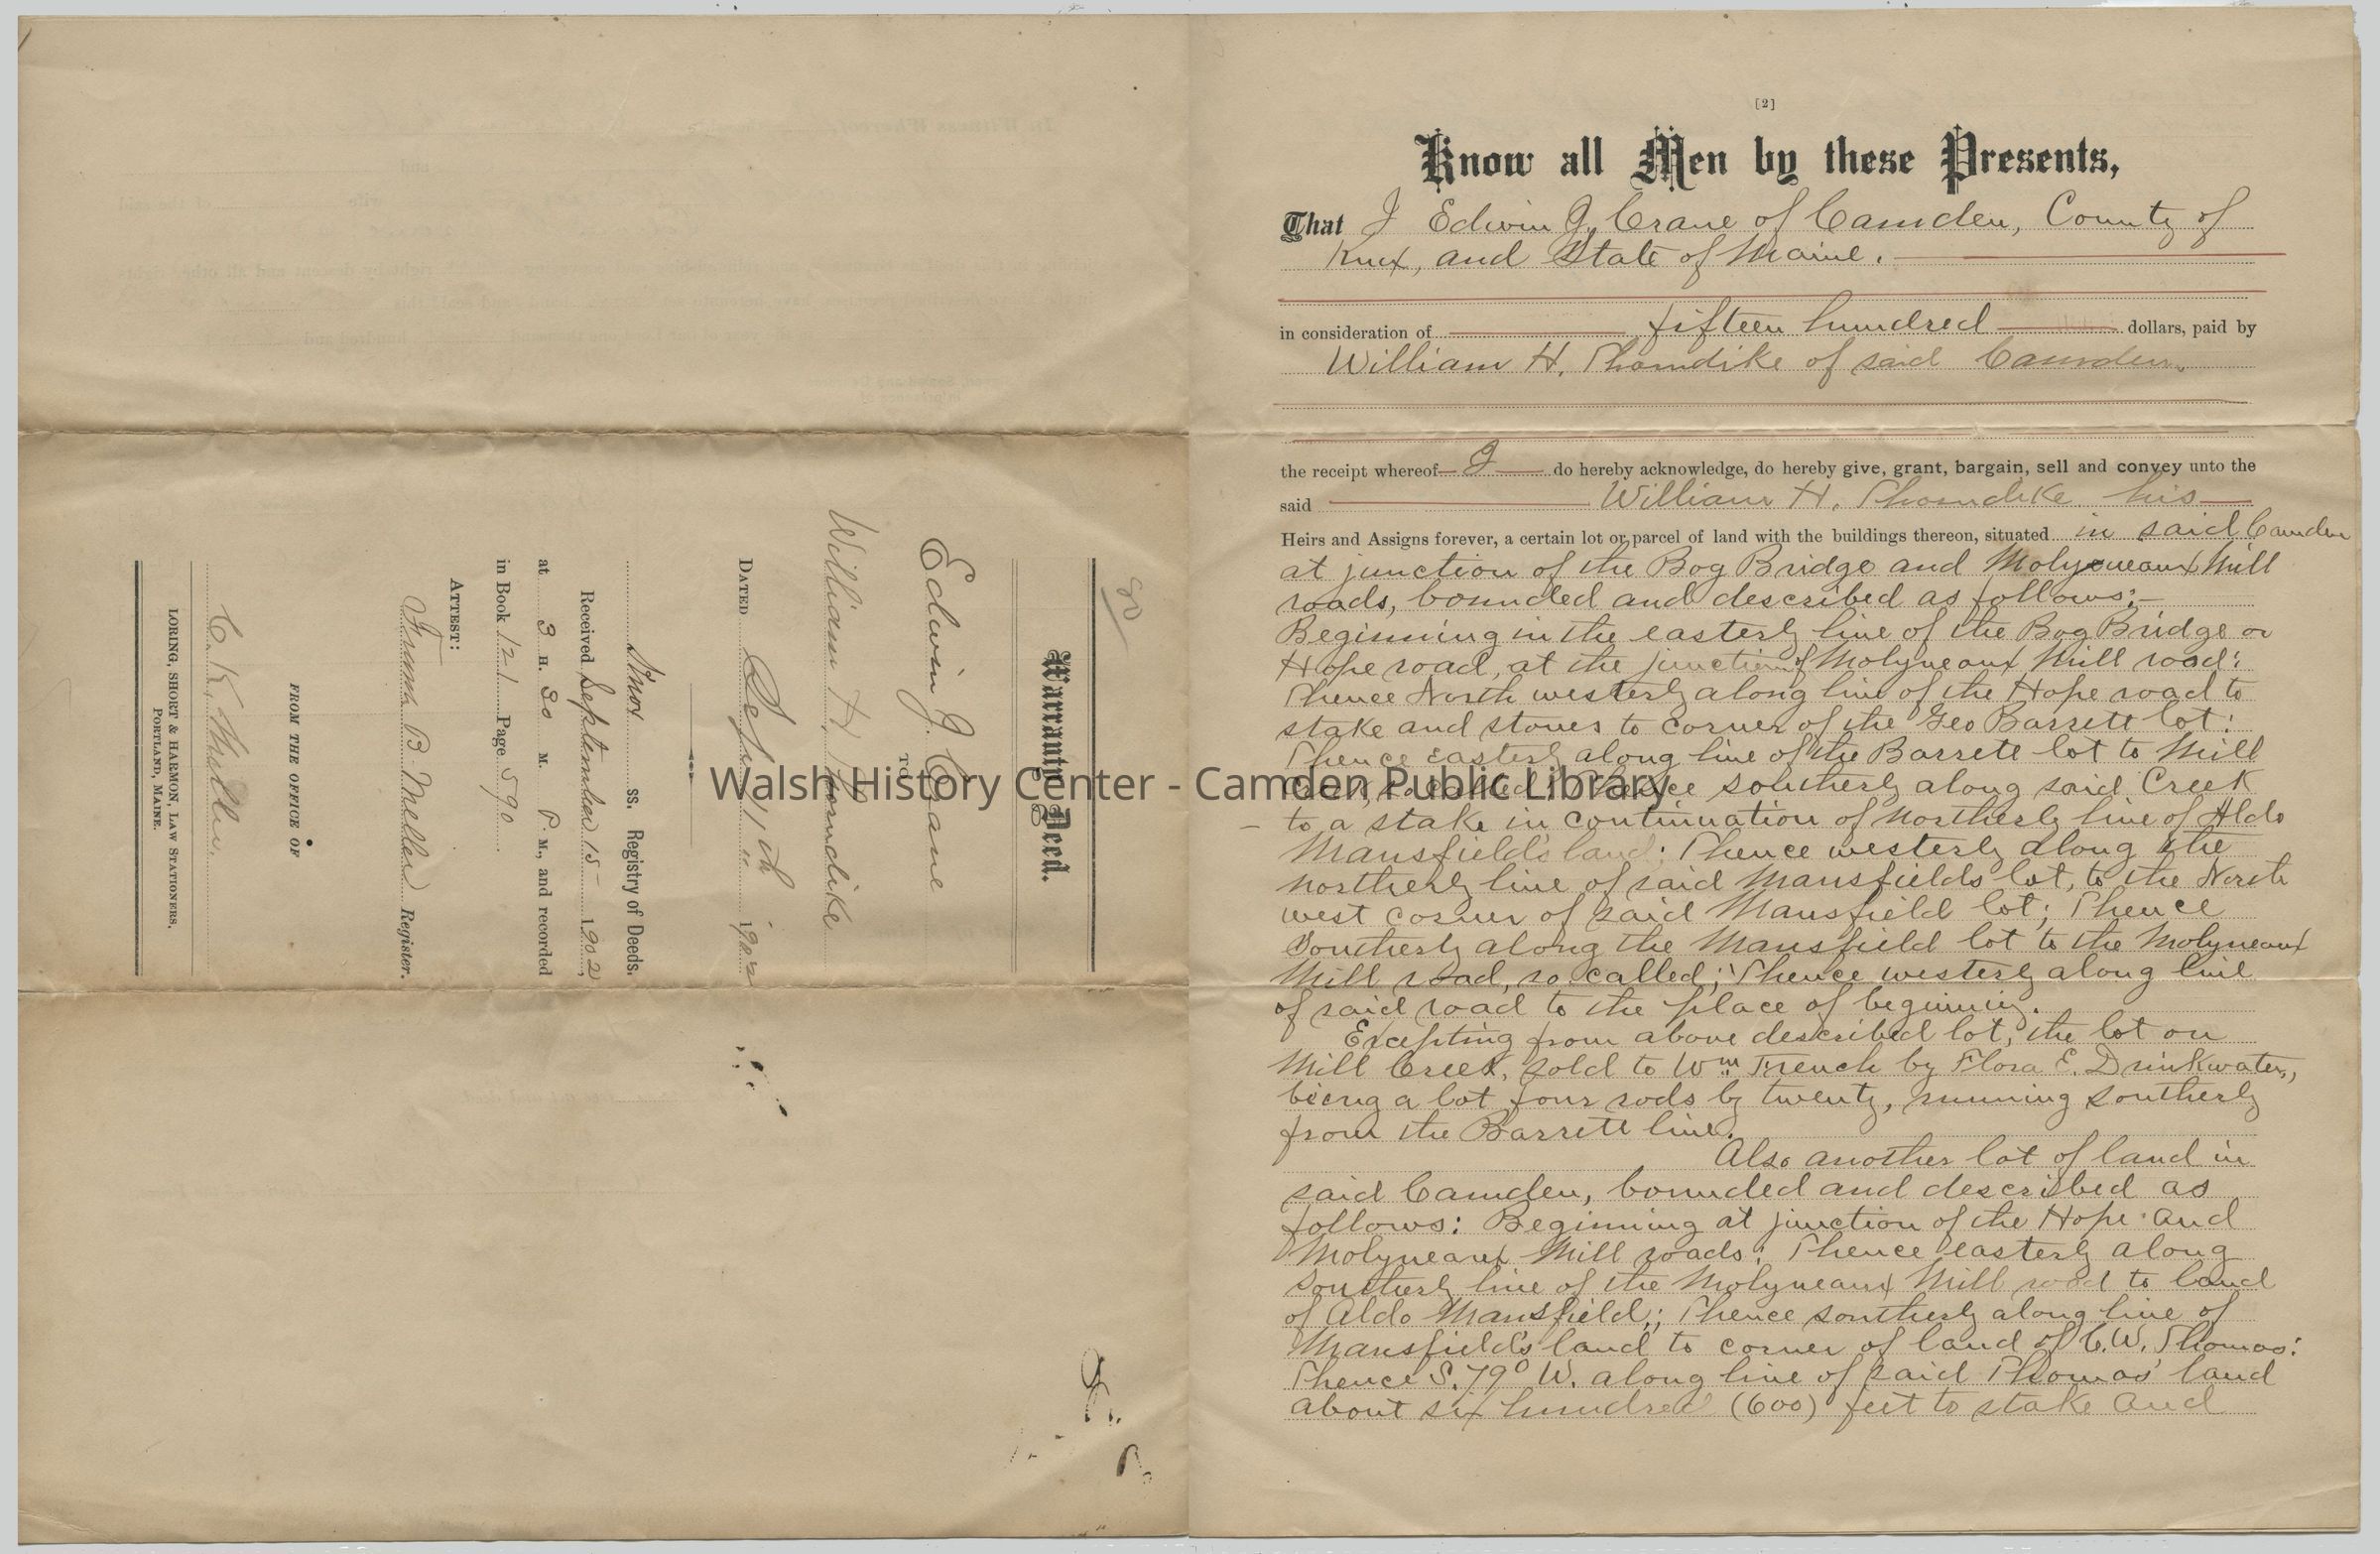 80
Warranty Deed.
Edwin J. Crane
TO
William H. Thorndike
DATED Sept 11th 1902
Knox ss. Registry of Deeds.
Received September 15 1902,
at 3 H. 30 M. P. M., and recorded
in Book 121 Page 590
ATTEST:
Register.
FROM THE OFFICE OF
C. K. Miller.
LORING, SHORT & HARMON, LAW STATIONERS,
PORTLAND, MAINE.
[2]
Know all Men by these Presents,
That I Edwin J. Crane of Camden, County of
Knox, and State of Maine.
in consideration of fifteen hundred dollars, paid by
William H. Thorndike of said Camden.
the receipt whereof I do hereby acknowledge, do hereby give, grant, bargain, sell and convey unto the
said William H. Thorndike his
Heirs and Assigns forever, a certain lot or parcel of land with the buildings thereon, situated in said Camden
at junction of the Bog Bridge and Molyneaux Mill
roads, bounded and described as follows:-
Beginning in the easterly line of the Bog Bridge or
Hope road, at the junction of Molyneaux Mill road:
Thence North westerly along line of the Hope road to
stake and stones to corner of the Geo Barrett lot:
Thence easterly along line of the Barrett lot to Mill
Creek, so called: Thence southerly along said Creek
to a stake in continuation of northerly line of Aldo
Mansfield's land: Thence westerly along the
northerly line of said Mansfields lot, to the North
west corner of said Mansfield lot; Thence
Southerly along the Mansfield lot to the Molyneaux
Mill road, so called; Thence westerly along line
of said road to the place of beginning.
Excepting from above described lot, the lot on
Mill Creek, sold to Wm French by Flora E. Drinkwater,
being a lot four rods by twenty, running southerly
from the Barrett line.
Also another lot of land in
said Camden, bounded and described as
follows: Beginning at junction of the Hope and
Molyneaux Mill roads: Thence easterly along
southerly line of the Molyneaux Mill road to land
of Aldo Mansfield; Thence southerly along line of
Mansfield's land to corner of land of C. W. Thomas:
Thence S. 79° W. along line of said Thomas' land
about six hundred (600) feet to stake and
Walsh History Center - Camden Public Library